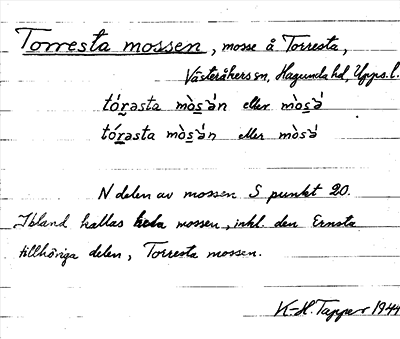 Torresta mossen, mosse å Torresta,
Västeråkers sn, Hagunda hd, Upps. l.
tóṟasta mòs̱ǝ́n eller mòs̱ǝ́
tóṟasta mòs̱ǝ́n eller mòsǝ́
N delen av mossen S punkt 20.
Ibland kallas hela mossen, inkl. den Ernsta
tillhöriga delen, Torresta mossen.
K-H. Tapper 1944